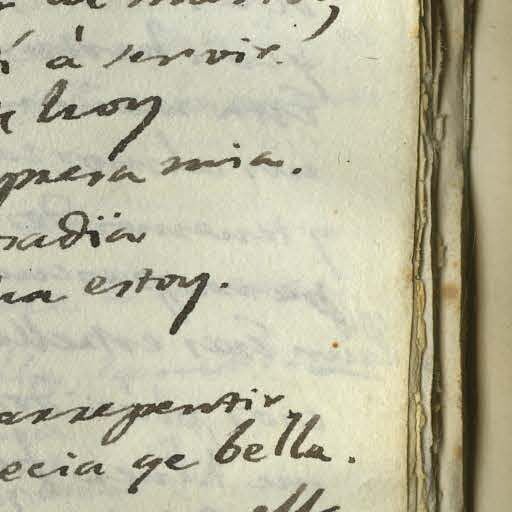 à servir.
hoy
presa mia.
radïa
estoy.
arrepentir,
ecia qe bella.